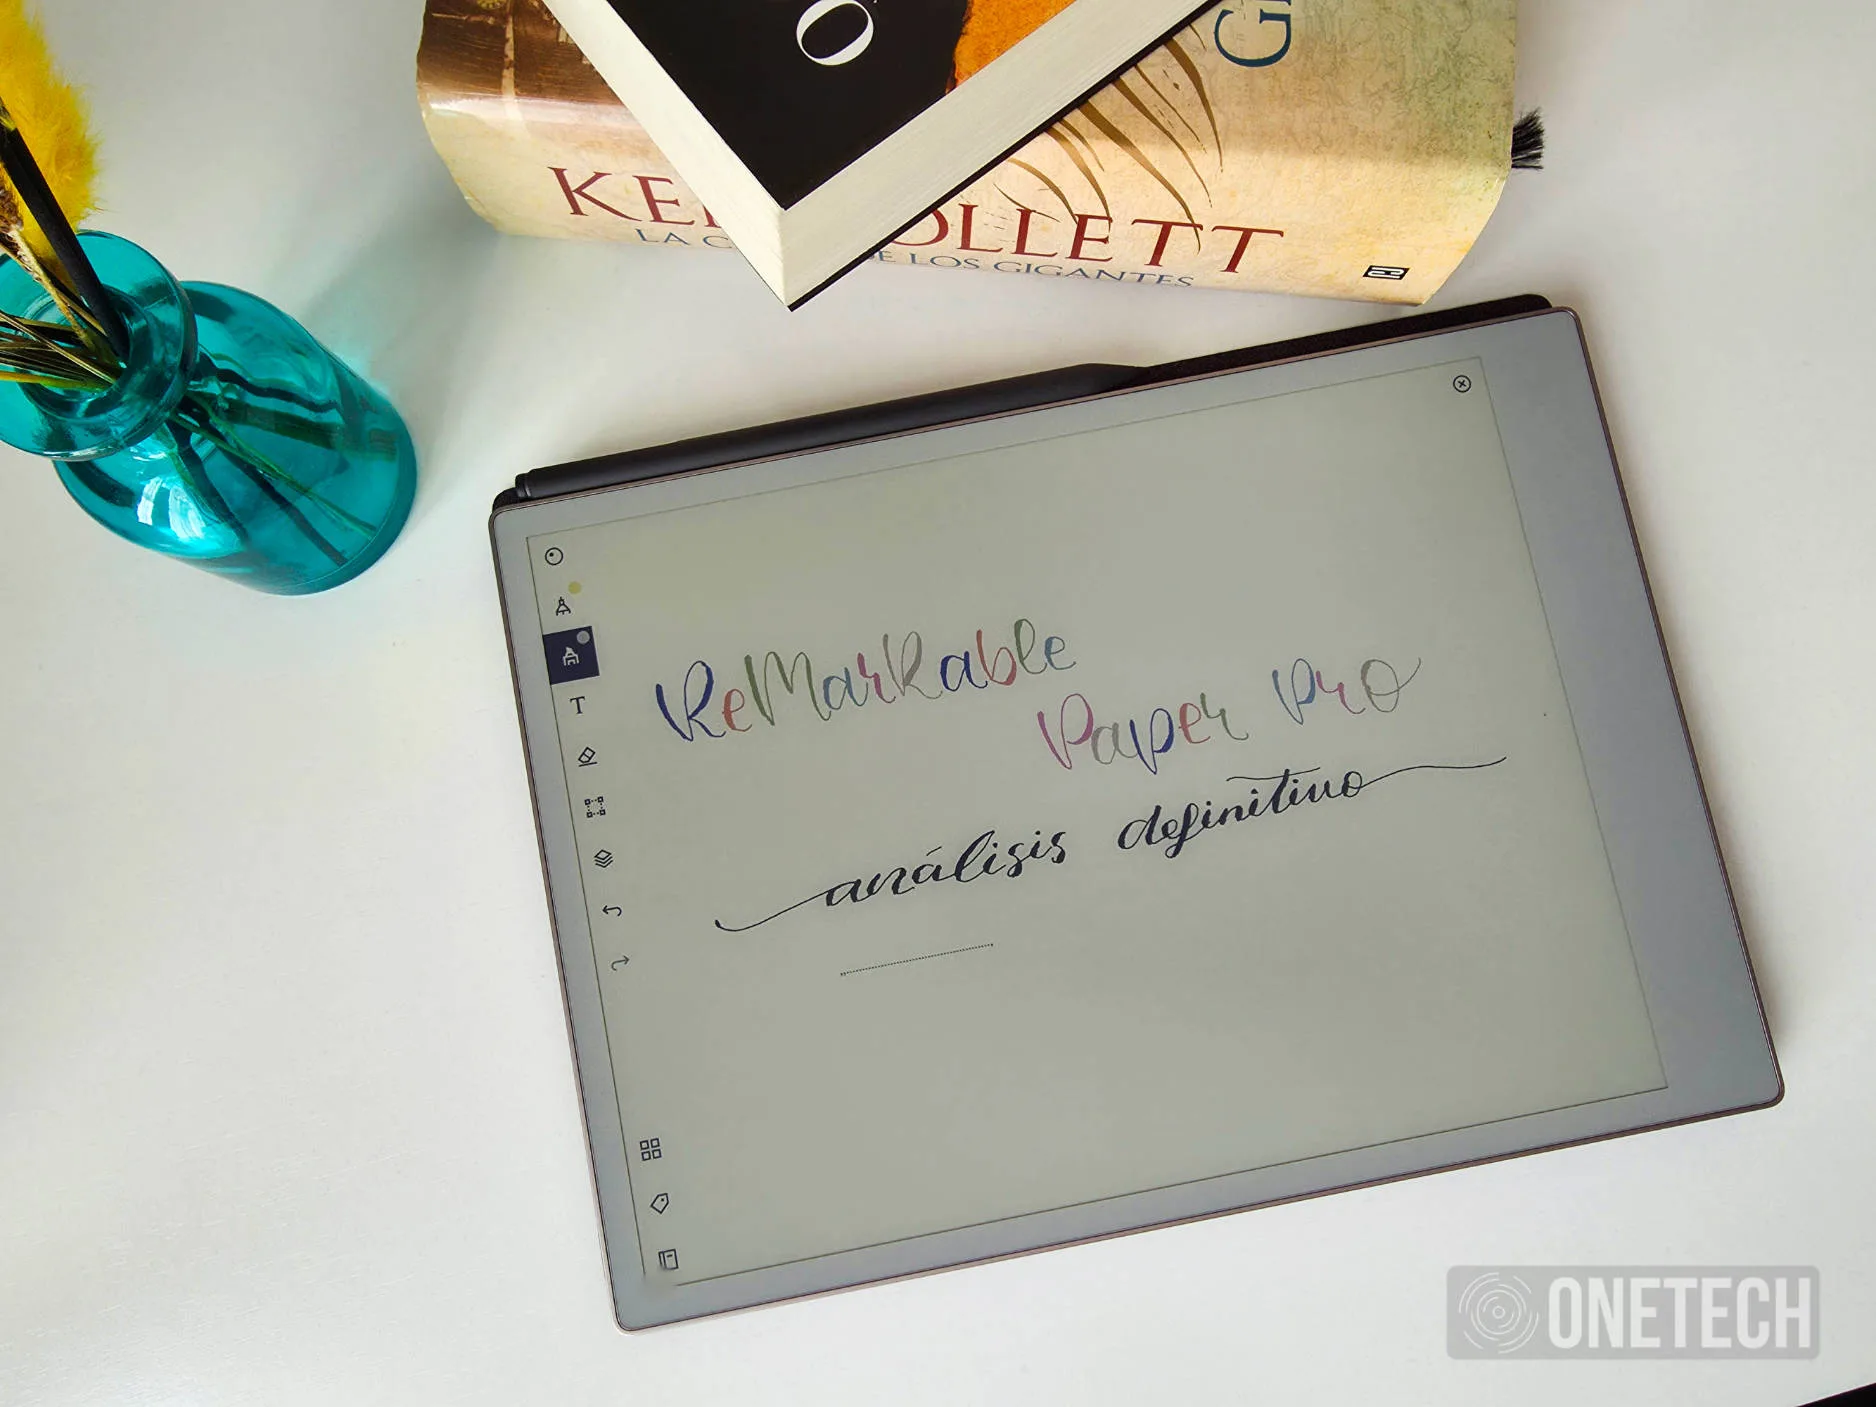 O
G
KE OLLETT
LA C DE LOS GIGANTES
T
ReMarkable
Paper Pro
análisis definitivo
ONETECH